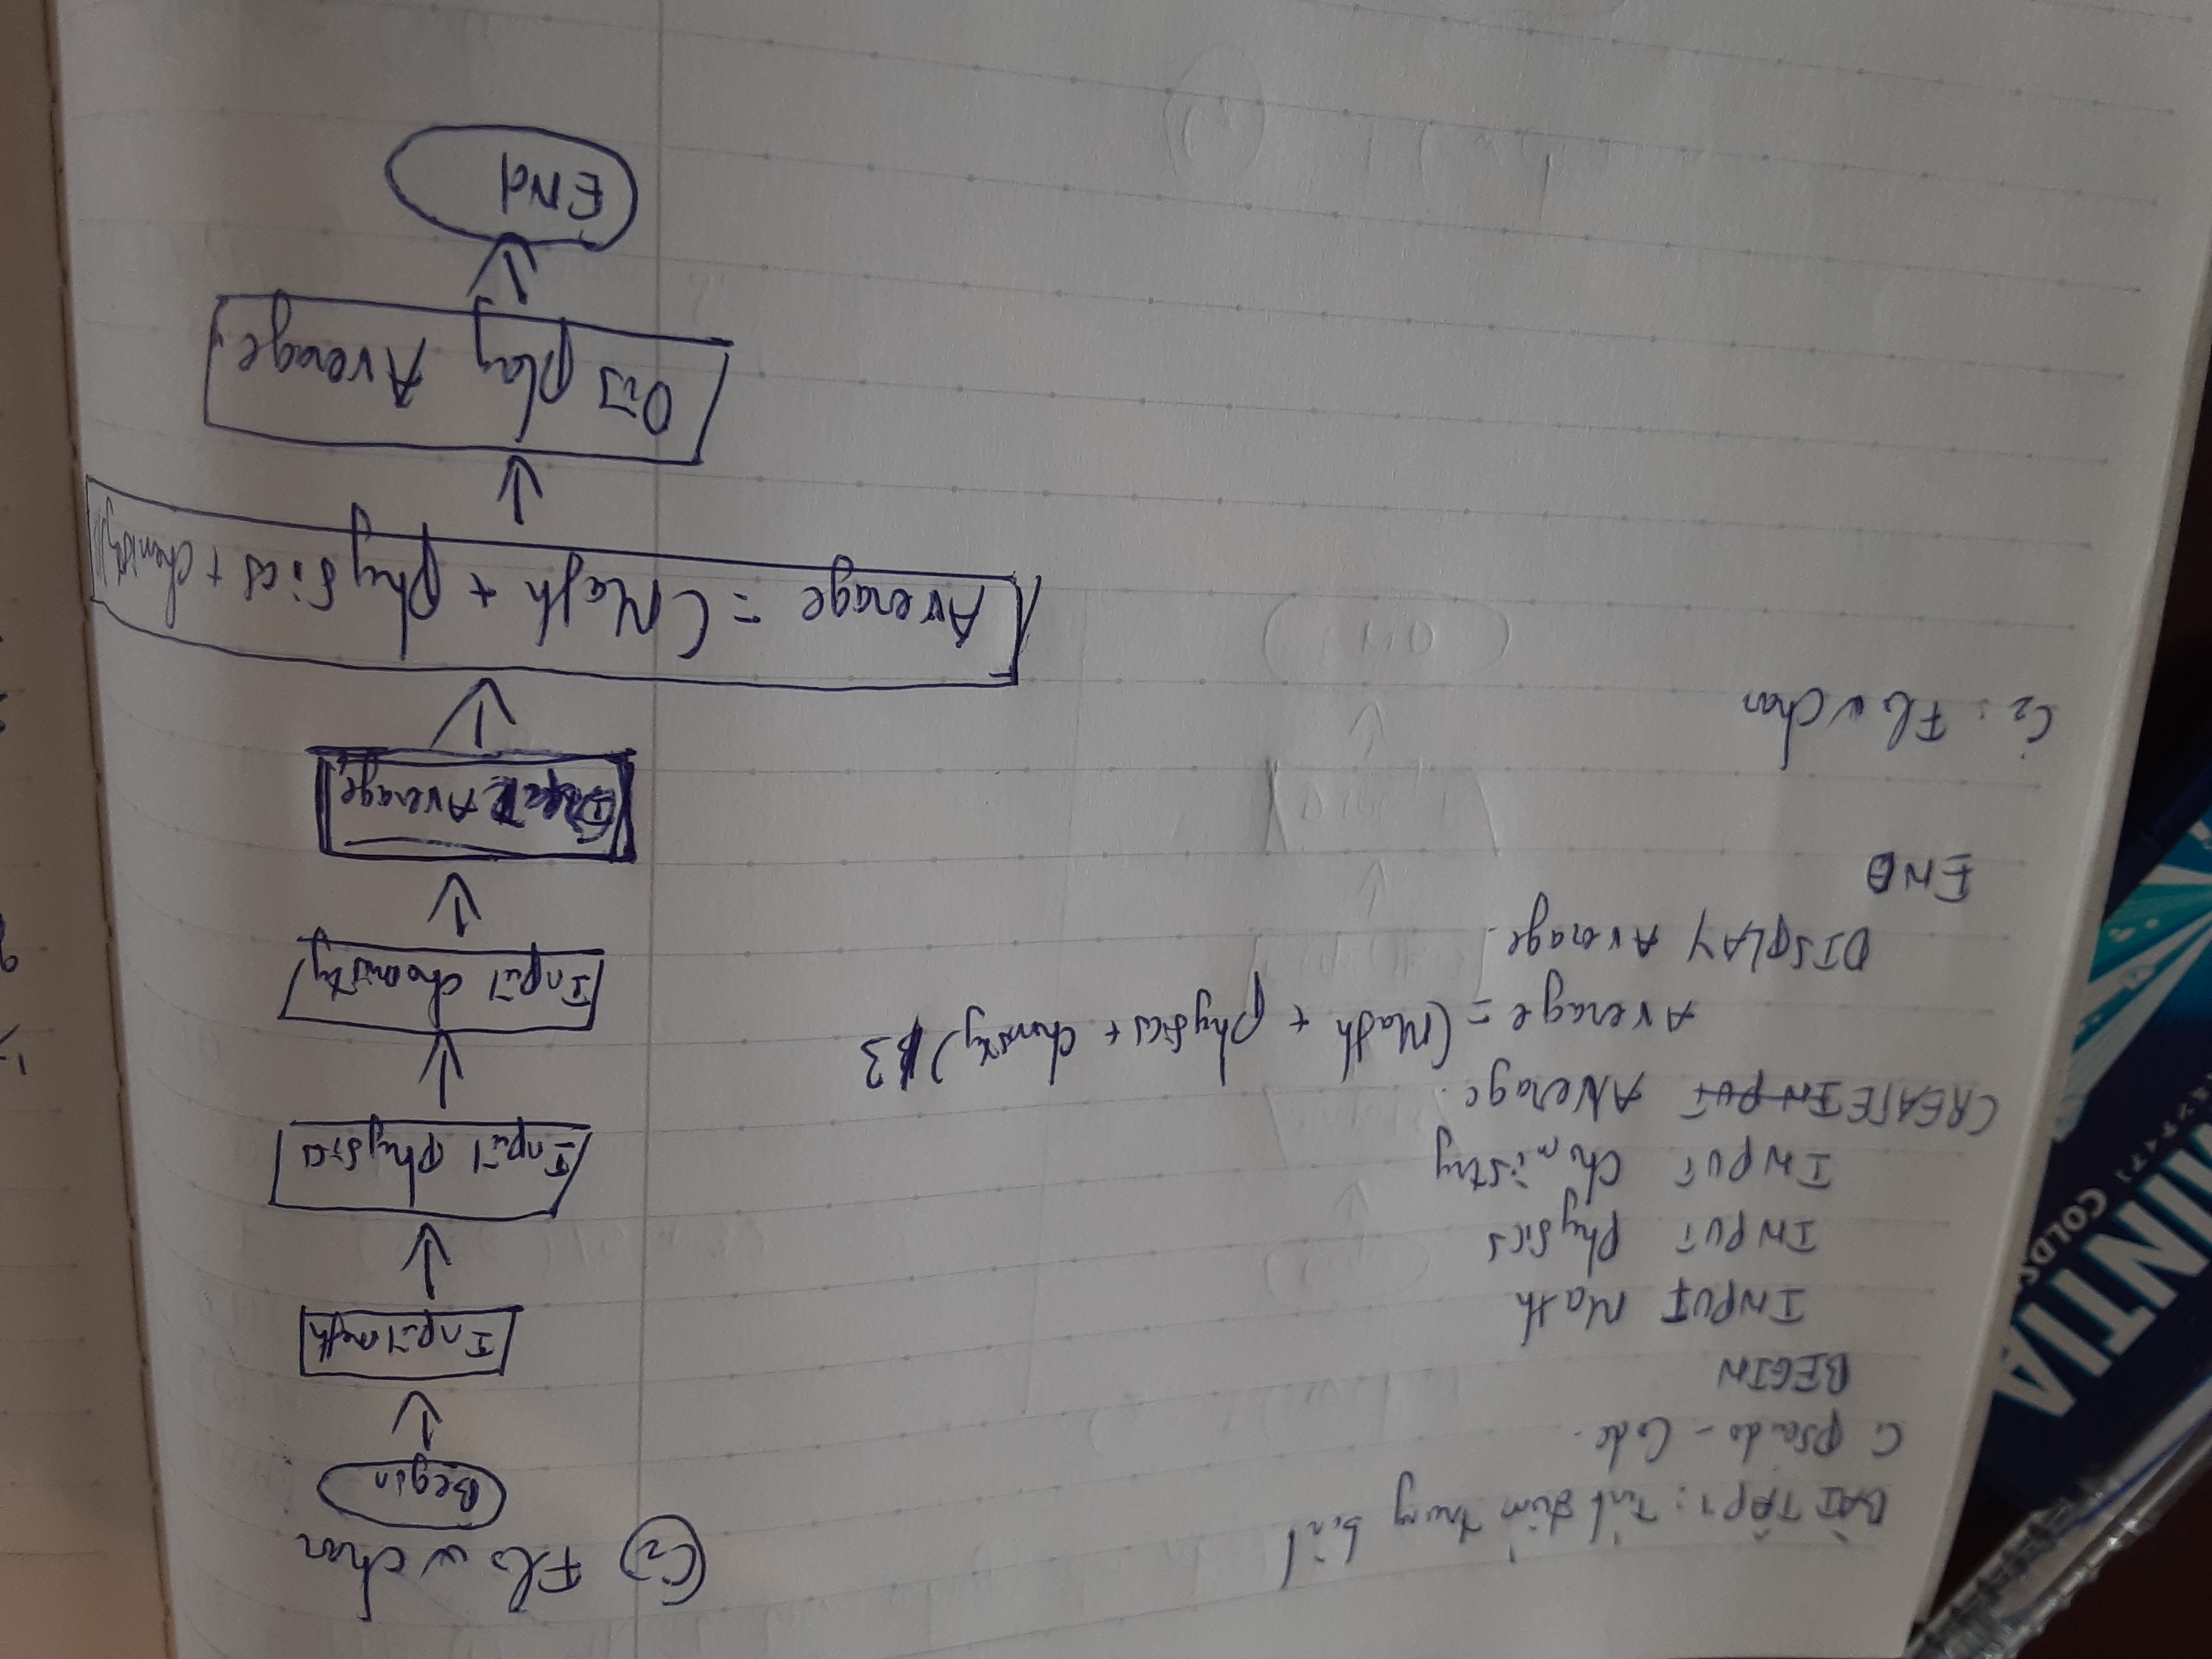 BÀI TẬP 1: Tính điểm trung bình
C1 Pseudo - Code.
BEGIN
INPUT Math
INPUT Physics
INPUT Chemistry
CREATE INPUT Average.
Average = (Math + physics + chemistry) / 3
DISPLAY Average.
END
C2: Flowchar
C2 Flowchar
Begin
Input math
Input physics
Input chemisty
Create Average
Average = (Math + physics + chemisty)
Display Average.
End
MINTIA
COLDS